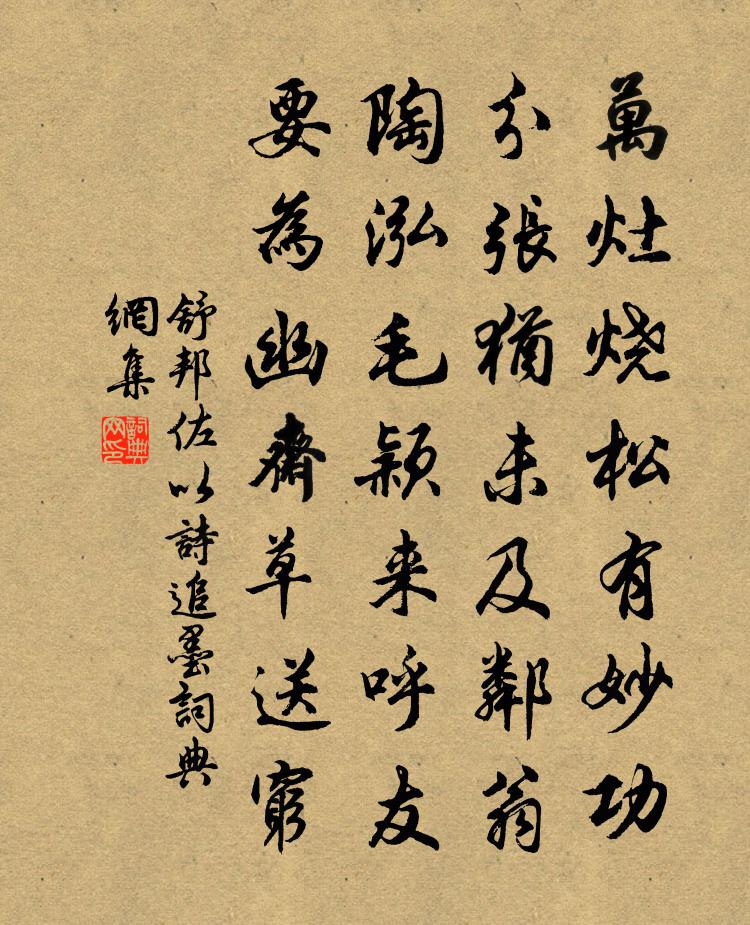 萬灶烧松有妙功
分張猶未及鄰翁
陶泓毛颖来呼友
要為幽齋草送窮
舒邦佐以詩追墨詞典
網集
詞典網印